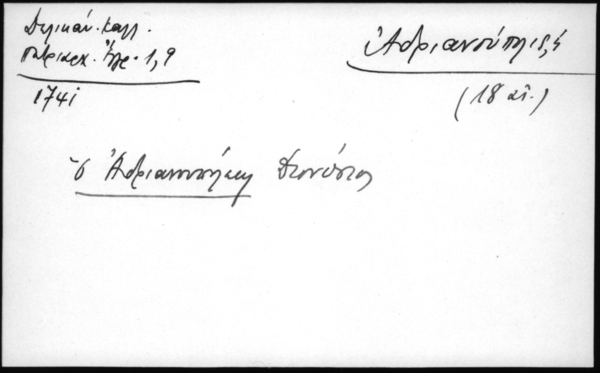 Δελικάν. Καλλ.
Πατριαρχ. Ἔγγρ. 1, 9
1741
Ἀδριανούπολις, ἡ
(18 αἰ.)
ὁ Ἀδριανουπόλεως Διονύσιος